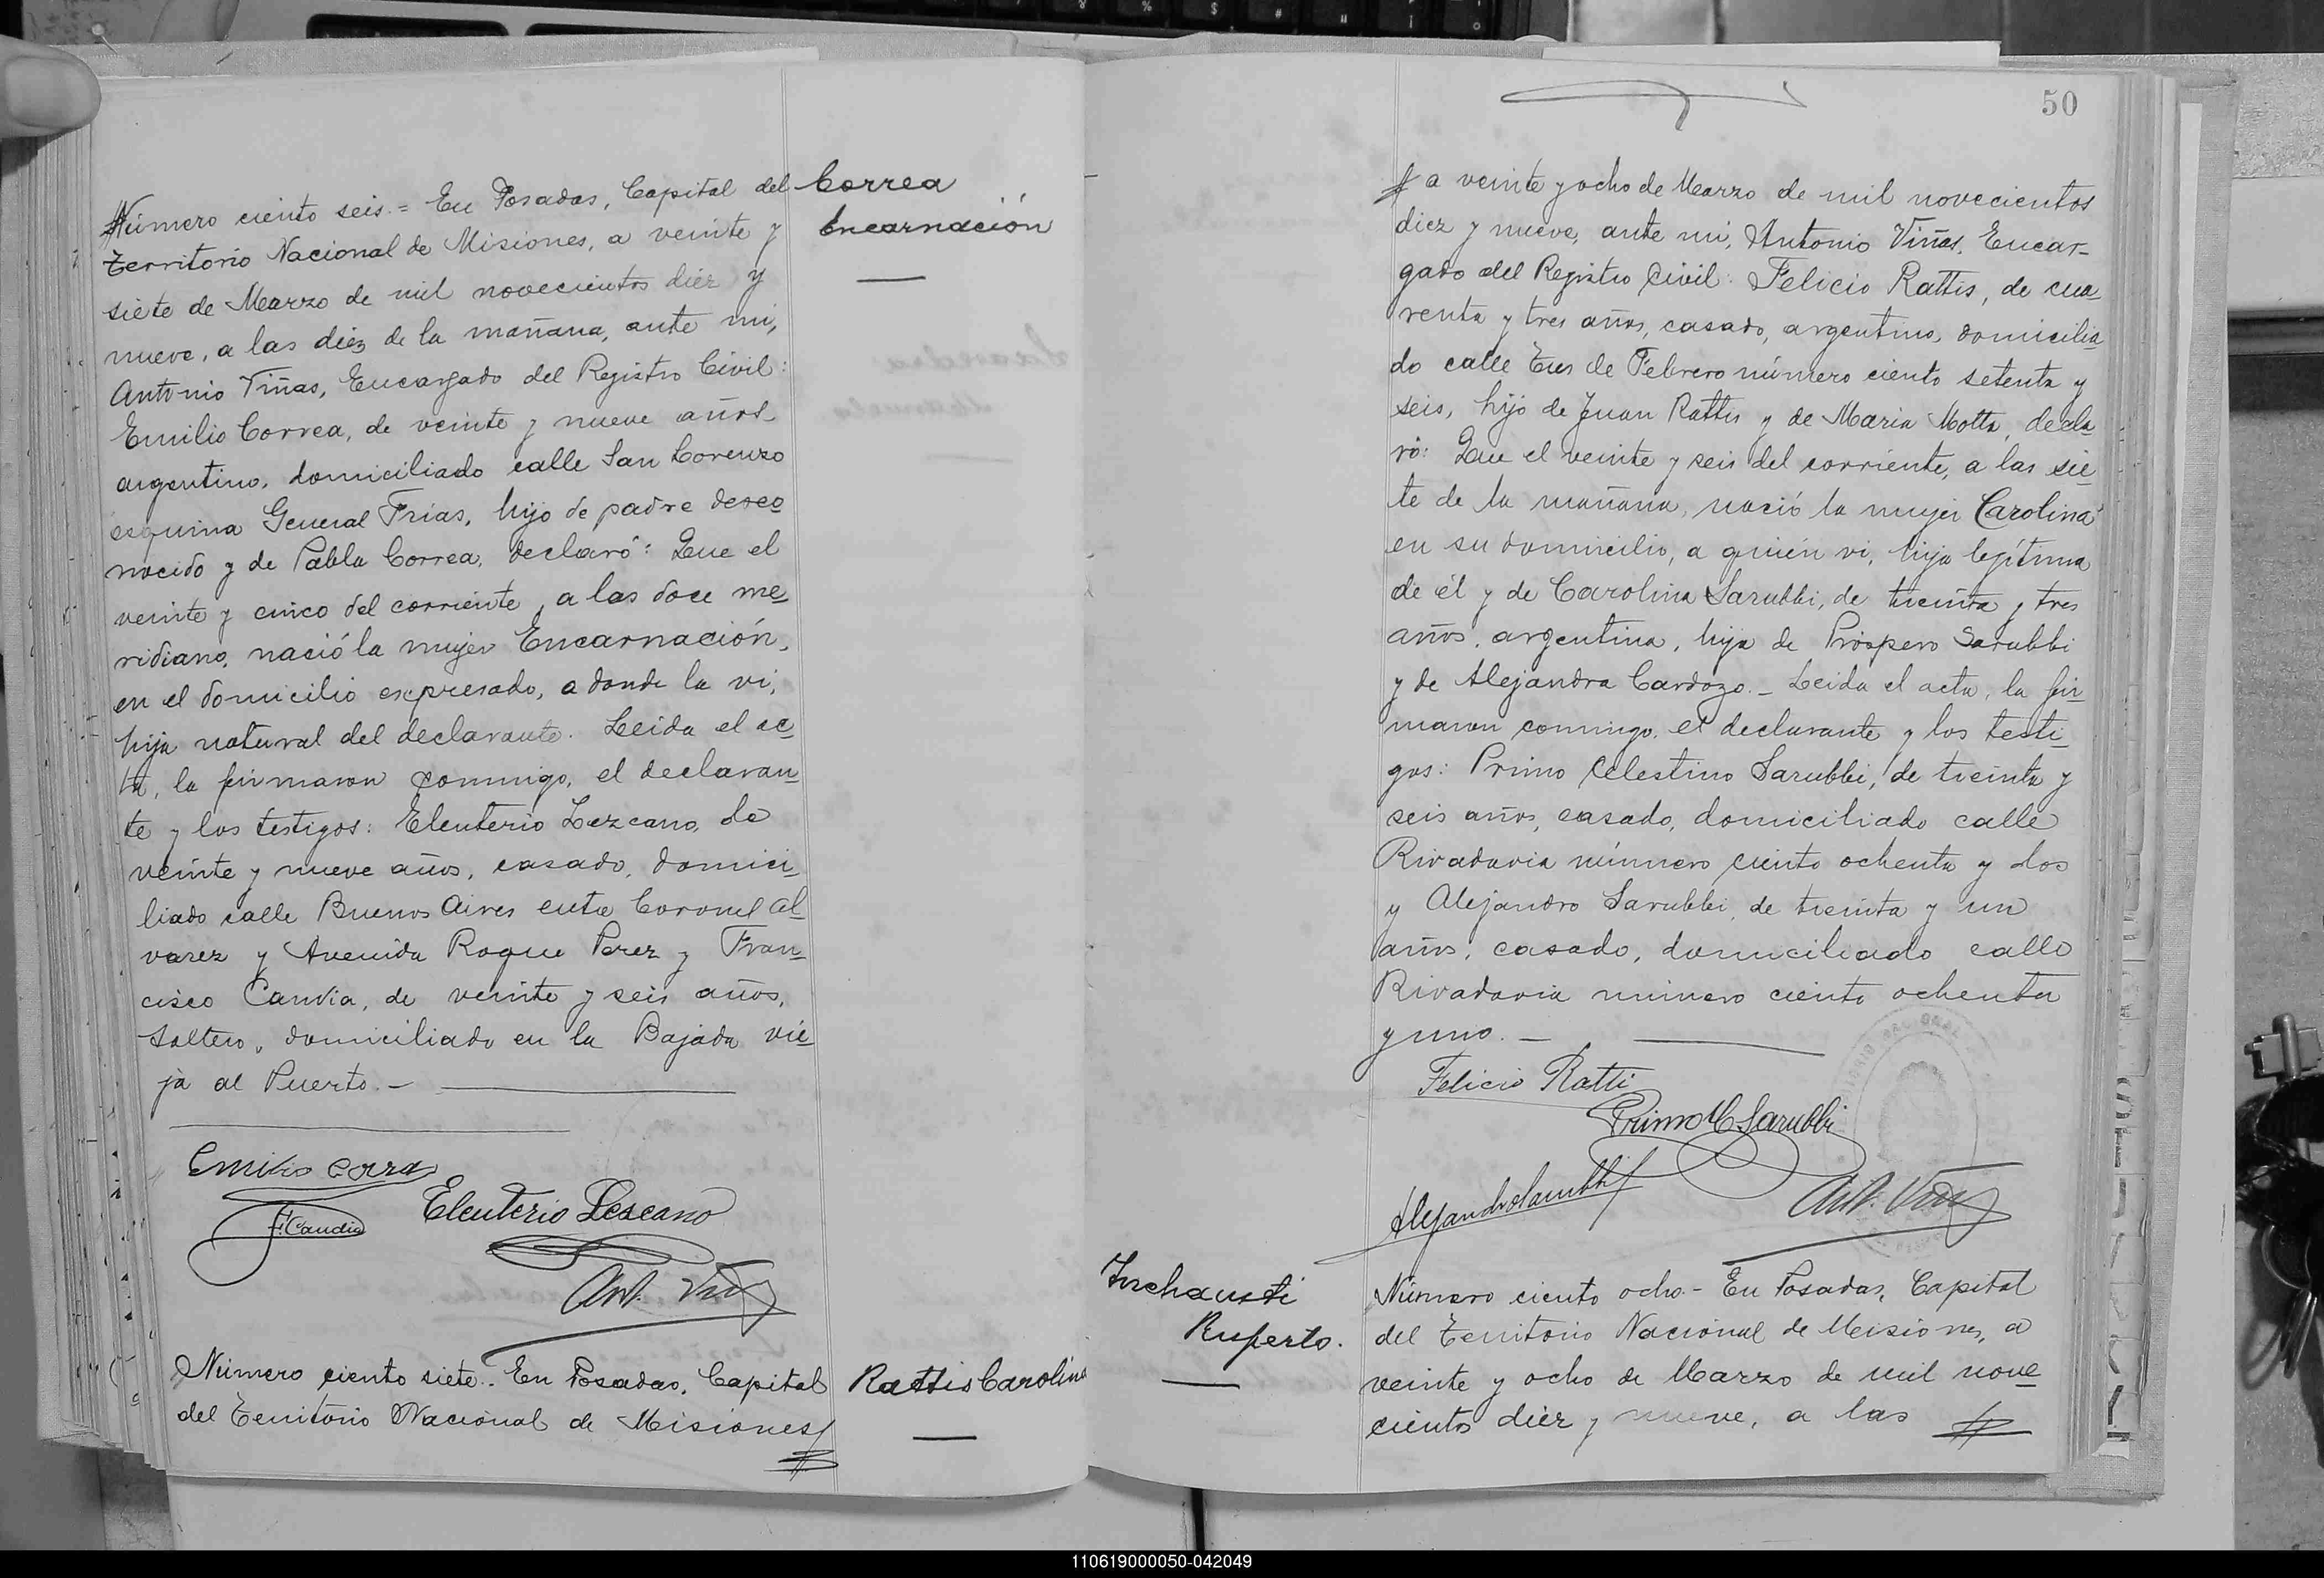 Número ciento seis.= En Posadas, Capital del
Territorio Nacional de Misiones, a veinte y
siete de Marzo de mil novecientos diez y
nueve, a las diez de la mañana, ante mi,
Antonio Viñas, Encargado del Registro Civil:
Emilio Correa, de veinte y nueve años
argentino, domiciliado calle San Lorenzo
esquina General Frias, hijo de padre desco
nocido y de Pabla Correa, declaró: Que el
veinte y cinco del corriente, a las doce me
ridiano, nació la mujer Encarnación,
en el domicilio expresado, a donde la vi,
hija natural del declarante. Leida el ac
ta, la firmaron conmigo, el declaran
te y los testigos: Eleuterio Lezcano, de
veinte y nueve años, casado, domici
liado calle Buenos Aires entre Coronel Al
varez y Avenida Roque Perez y Fran
cisco Candia, de veinte y seis años,
soltero, domiciliado en la Bajada vie
ja al Puerto.-
Correa
Encarnación
Emilio Correa
F. Candia
Eleuterio Lescano
Ant. Viñas
Número ciento siete.- En Posadas, Capital
del Territorio Nacional de Misiones
Rattis Carolina
50
a veinte y ocho de Marzo de mil novecientos
diez y nueve, ante mi, Antonio Viñas, Encar-
gado del Registro Civil: Felicio Rattis, de cua
renta y tres años, casado, argentino, domicilia
do calle Tres de Febrero número ciento setenta y
seis, hijo de Juan Rattis y de Maria Motta, decla
ró: Que el veinte y seis del corriente, a las sie
te de la mañana, nació la mujer Carolina
en su domicilio, a quién vi, hija legítima
de él y de Carolina Sarubbi, de treinta y tres
años, argentina, hija de Próspero Sarubbi
y de Alejandra Cardozo.- Leida el acta, la fir
maron conmigo, el declarante y los testi
gos: Primo Celestino Sarubbi, de treinta y
seis años, casado, domiciliado calle
Rivadavia número ciento ochenta y dos
y Alejandro Sarubbi, de treinta y un
años, casado, domiciliado calle
Rivadavia número ciento ochenta
y uno.-
Felicio Ratti
Primo C Sarubbi
Alejandro Sarubbi
Ant. Viñas
Inchausti
Ruperto.
Número ciento ocho.- En Posadas, Capital
del Territorio Nacional de Misiones, a
veinte y ocho de Marzo de mil nove
cientos diez y nueve, a las
110619000050-042049